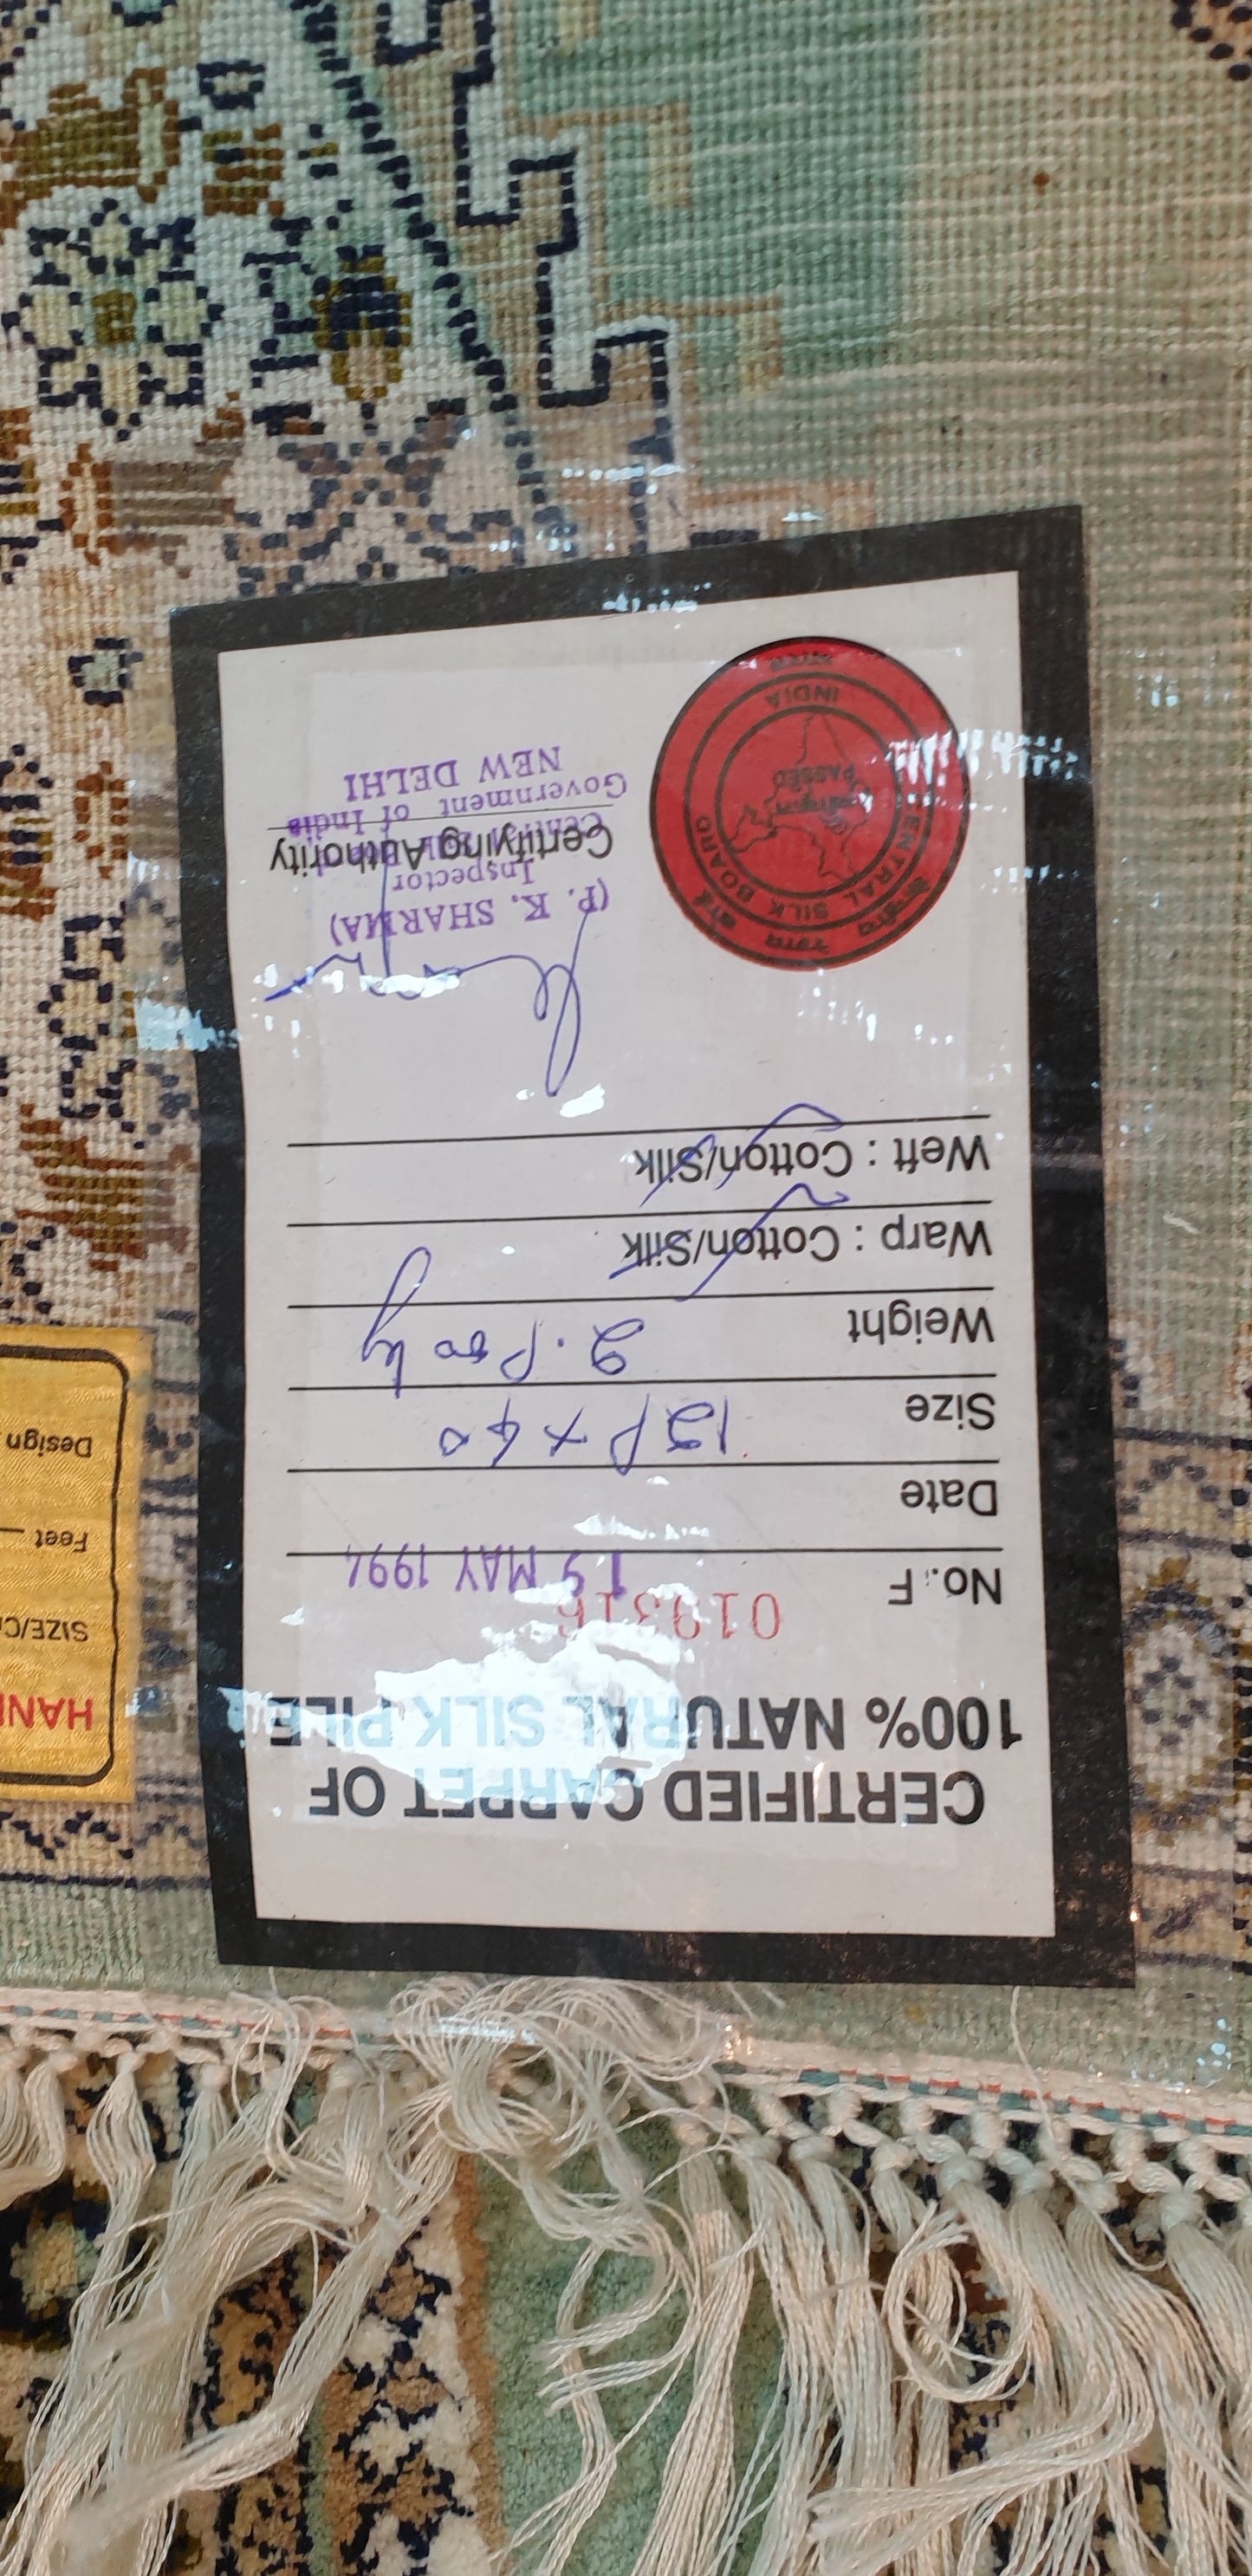 CERTIFIED CARPET OF
100% NATURAL SILK PILE
No. F 019316
19 MAY 1994
Date
Size
Weight
Warp : Cotton/Silk
Weft : Cotton/Silk
(P. K. SHARMA)
Inspector
Certifying Authority
Central Silk Board
Government of India
NEW DELHI
CENTRAL SILK BOARD
INDIA
PASSED
HAN
SIZE/C
Feet
Design